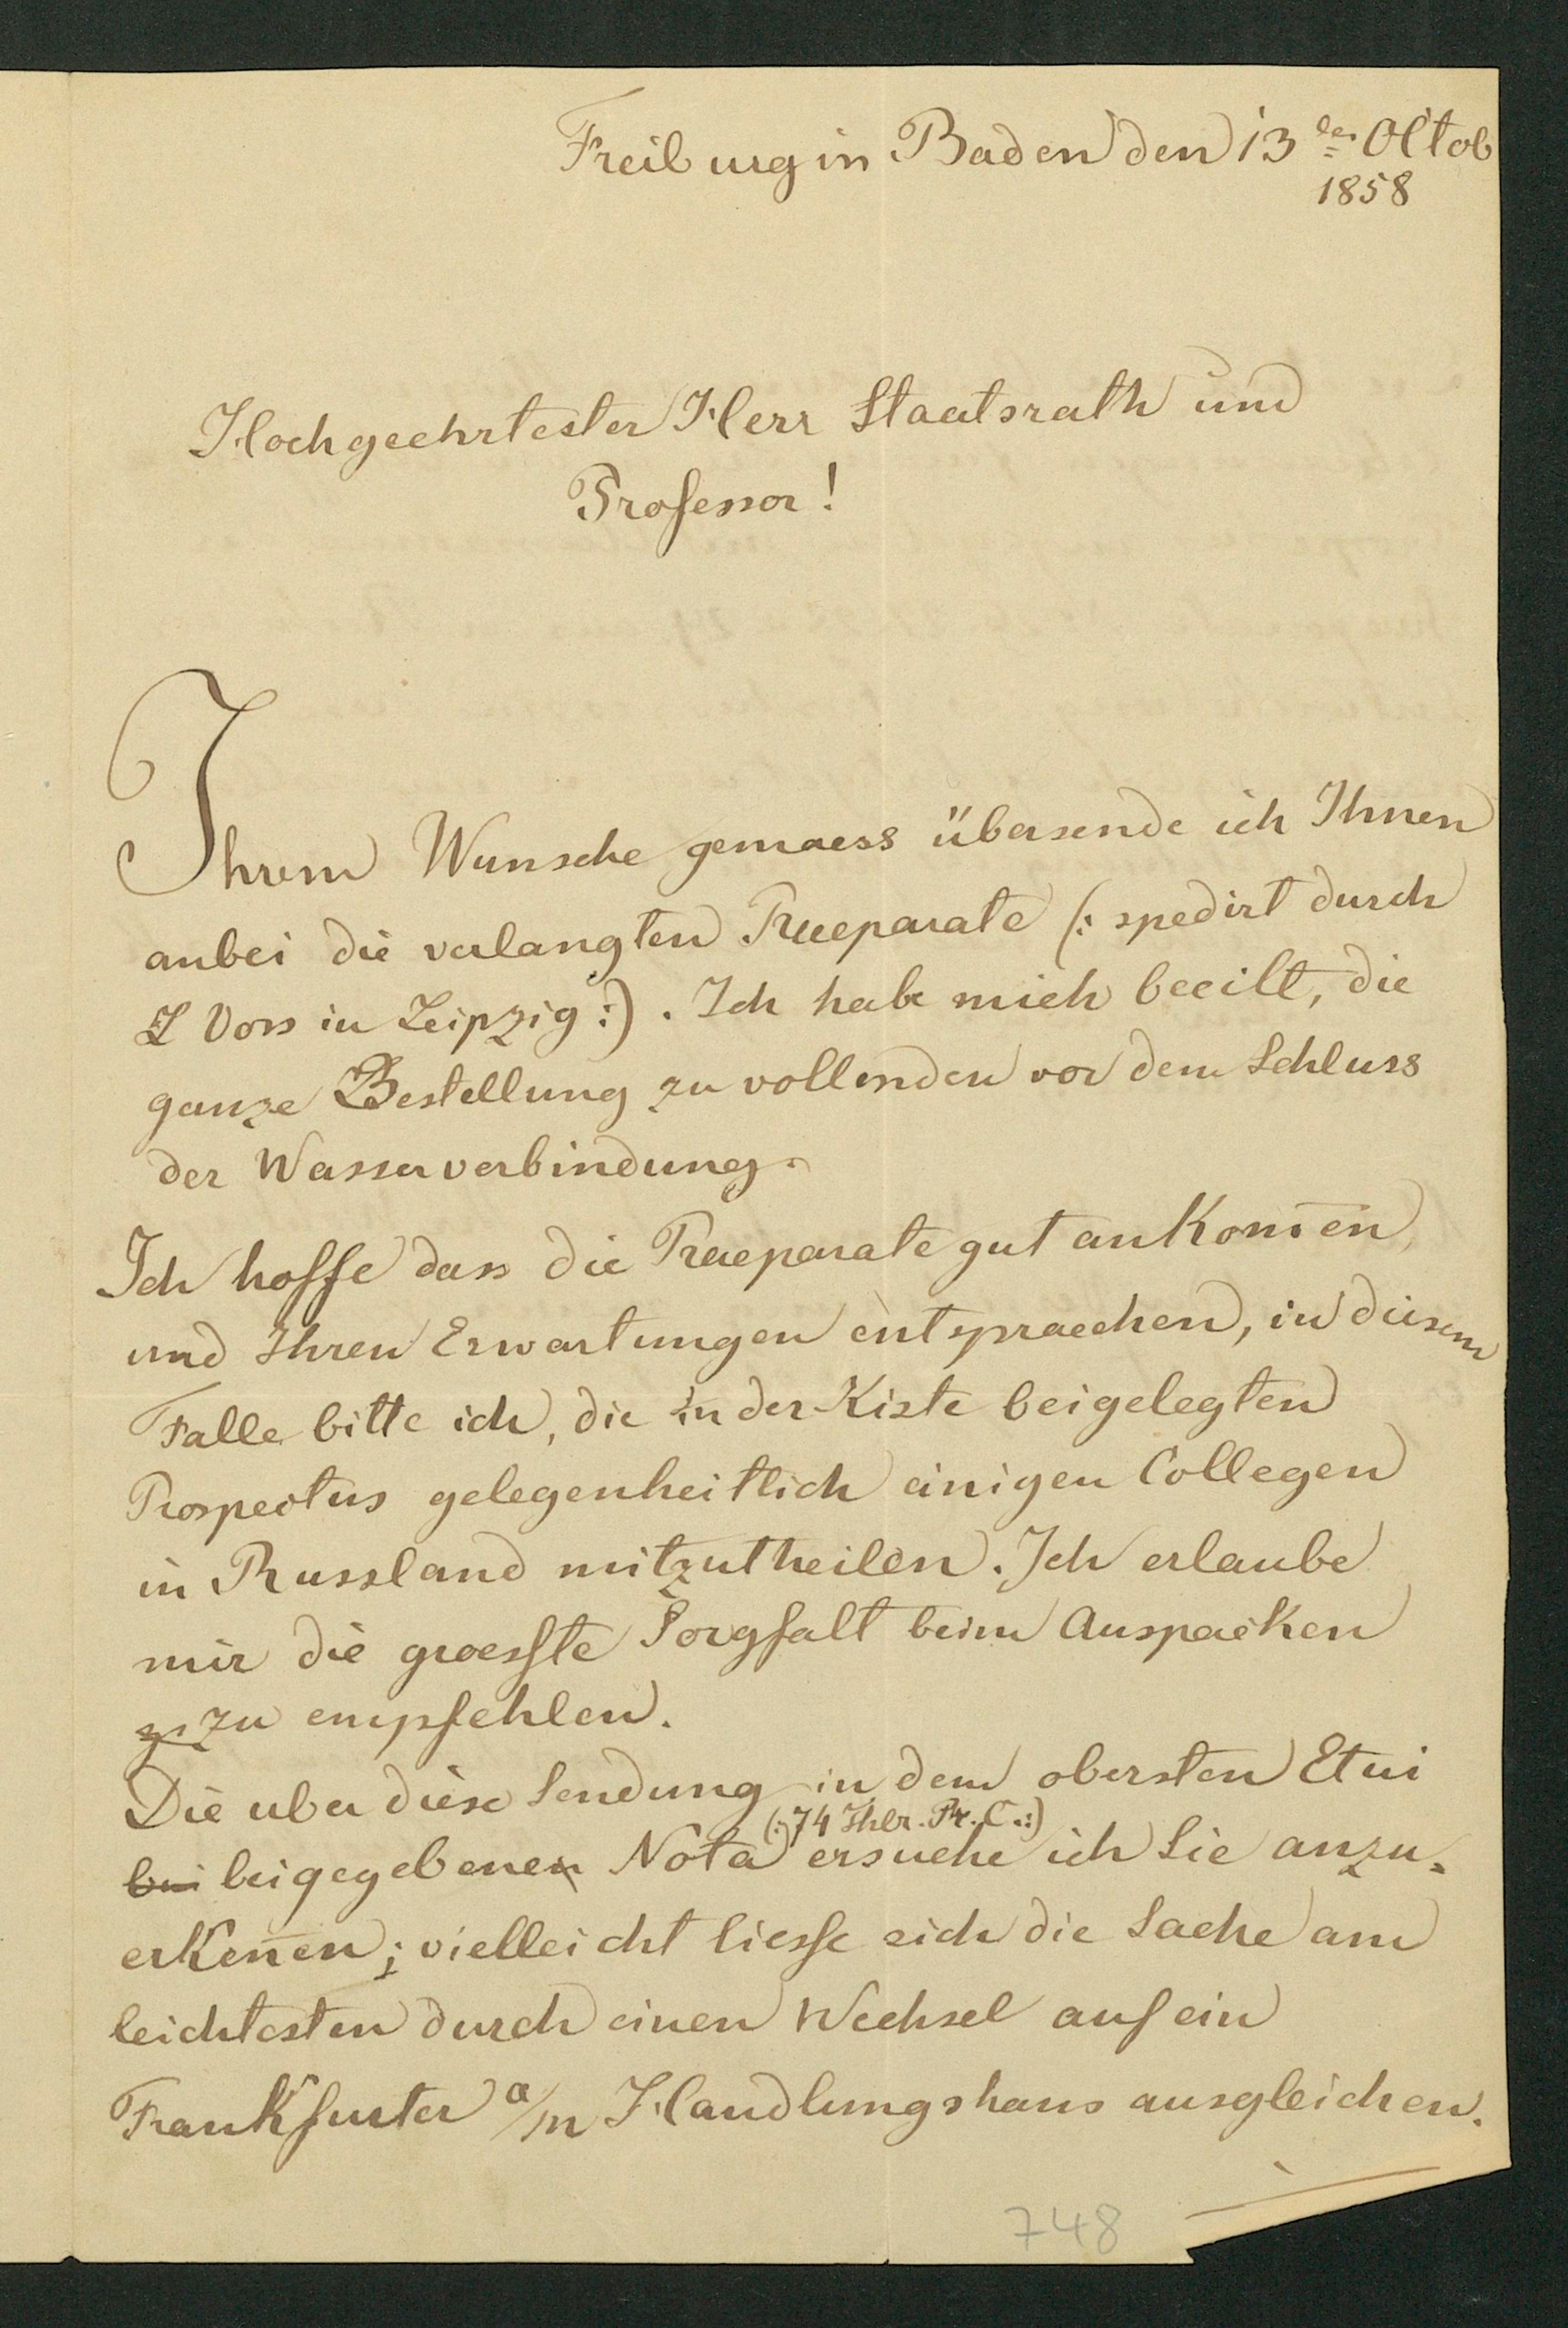 Freiburg in Baden den 13ten Oktob
1858
Hochgeehrtester Herr Staatsrath und
Professor!
Ihrem Wunsche gemaess übersende ich Ihnen
anbei die verlangten Praeparate (: spedirt durch
L Voss in Leipzig :). Ich habe mich beeilt, die
ganze Bestellung zu vollenden vor dem Schluss
der Wasserverbindung.
Ich hoffe dass die Praeparate gut ankom̄en,
und Ihren Erwartungen entspraechen, in diesem
Falle bitte ich, die in der Kiste beigelegten
Prospectus gelegenheitlich einigen Collegen
in Russland mitzutheilen. Ich erlaube
mir die groesste Sorgfalt beim Auspacken
zu empfehlen.
Die uber diese Sendung in dem obersten Etui
(: 74 Thlr. Pr. C. :)
bei beigegebene Nota ersuche ich Sie anzu-
erken̄en; vielleicht liesse sich die Sache am
leichtesten durch einen Wechsel auf ein
Frankfurter a/m Handlungshaus ausgleichen.
748